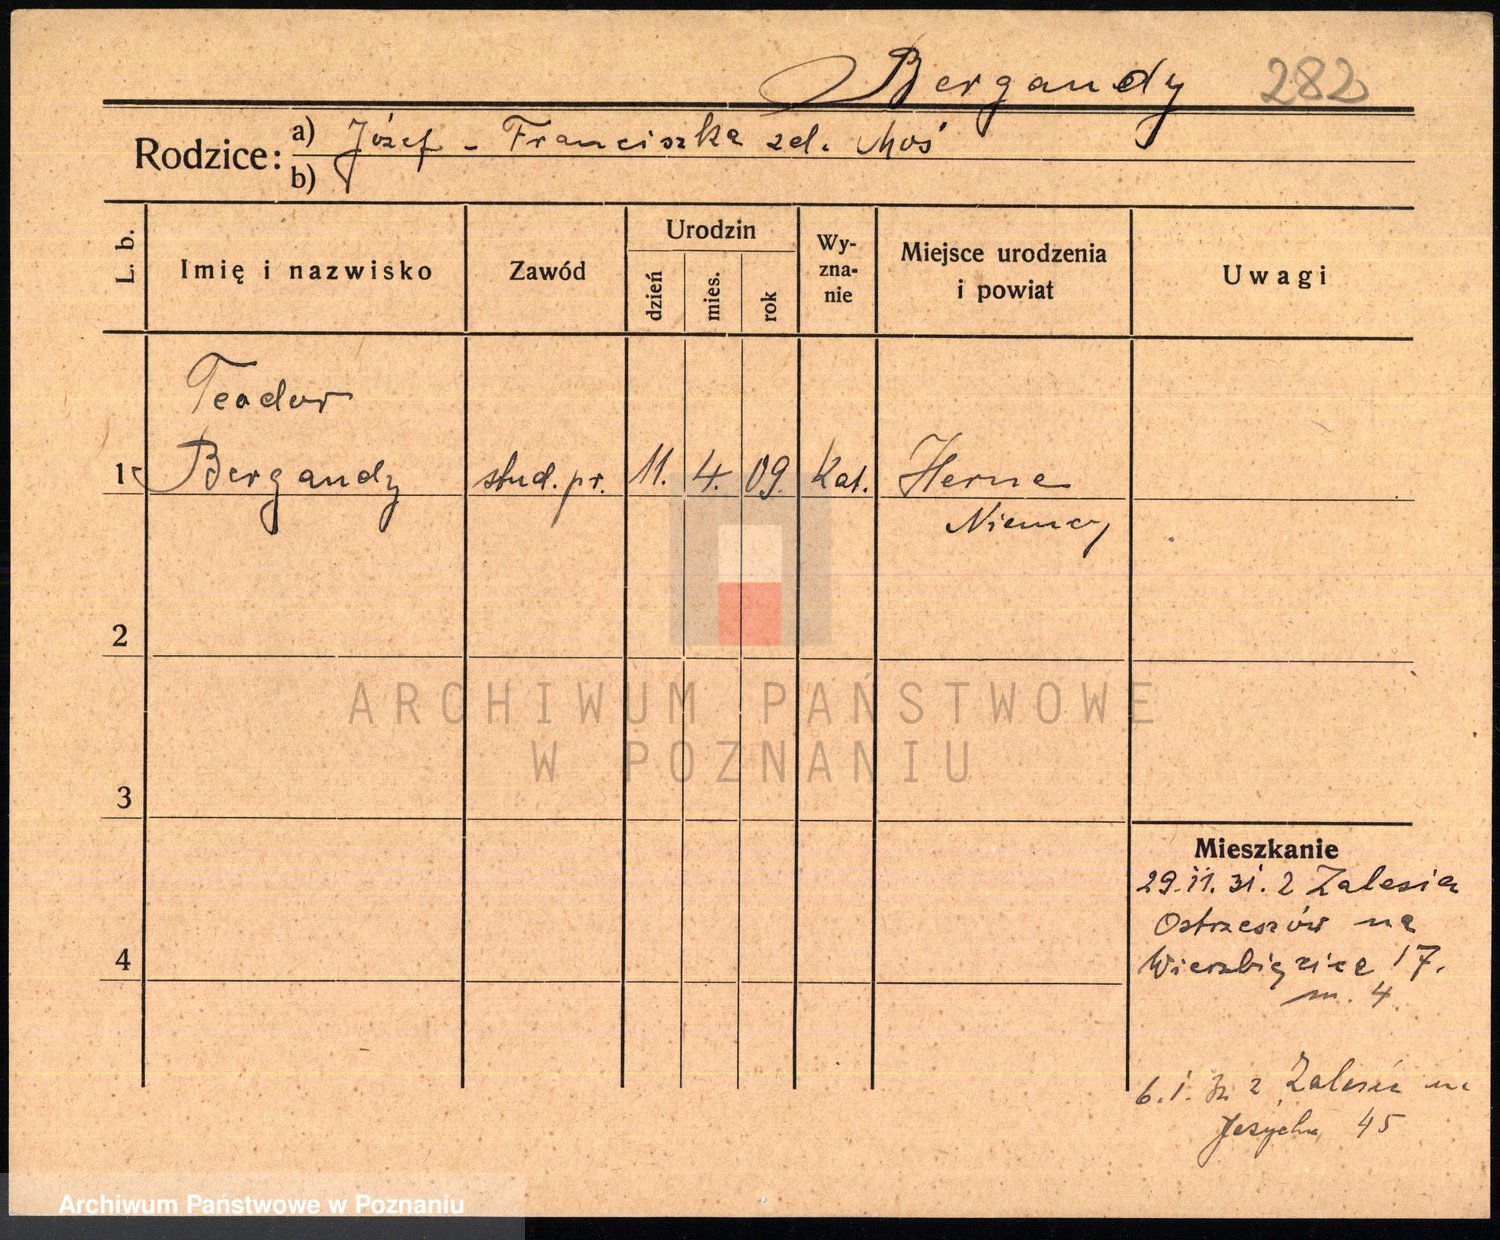 Bergandy 282
Rodzice: a) Józef - Franciszka zd. Moś
b)
L. b.
Imię i nazwisko
Zawód
Urodzin
dzień
mies.
rok
Wy-
zna-
nie
Miejsce urodzenia
i powiat
Uwagi
Teodor
1 Bergandy stud. pr. 11. 4. 09. Kat. Herne
Niemcy
2
ARCHIWUM PAŃSTWOWE
W POZNANIU
3
Mieszkanie
29.11.31. z Zalesia
Ostrzeszów na
Wierzbięcice 17.
m. 4
4
6. 1. z Zalesia na
45
Archiwum Państwowe w Poznaniu